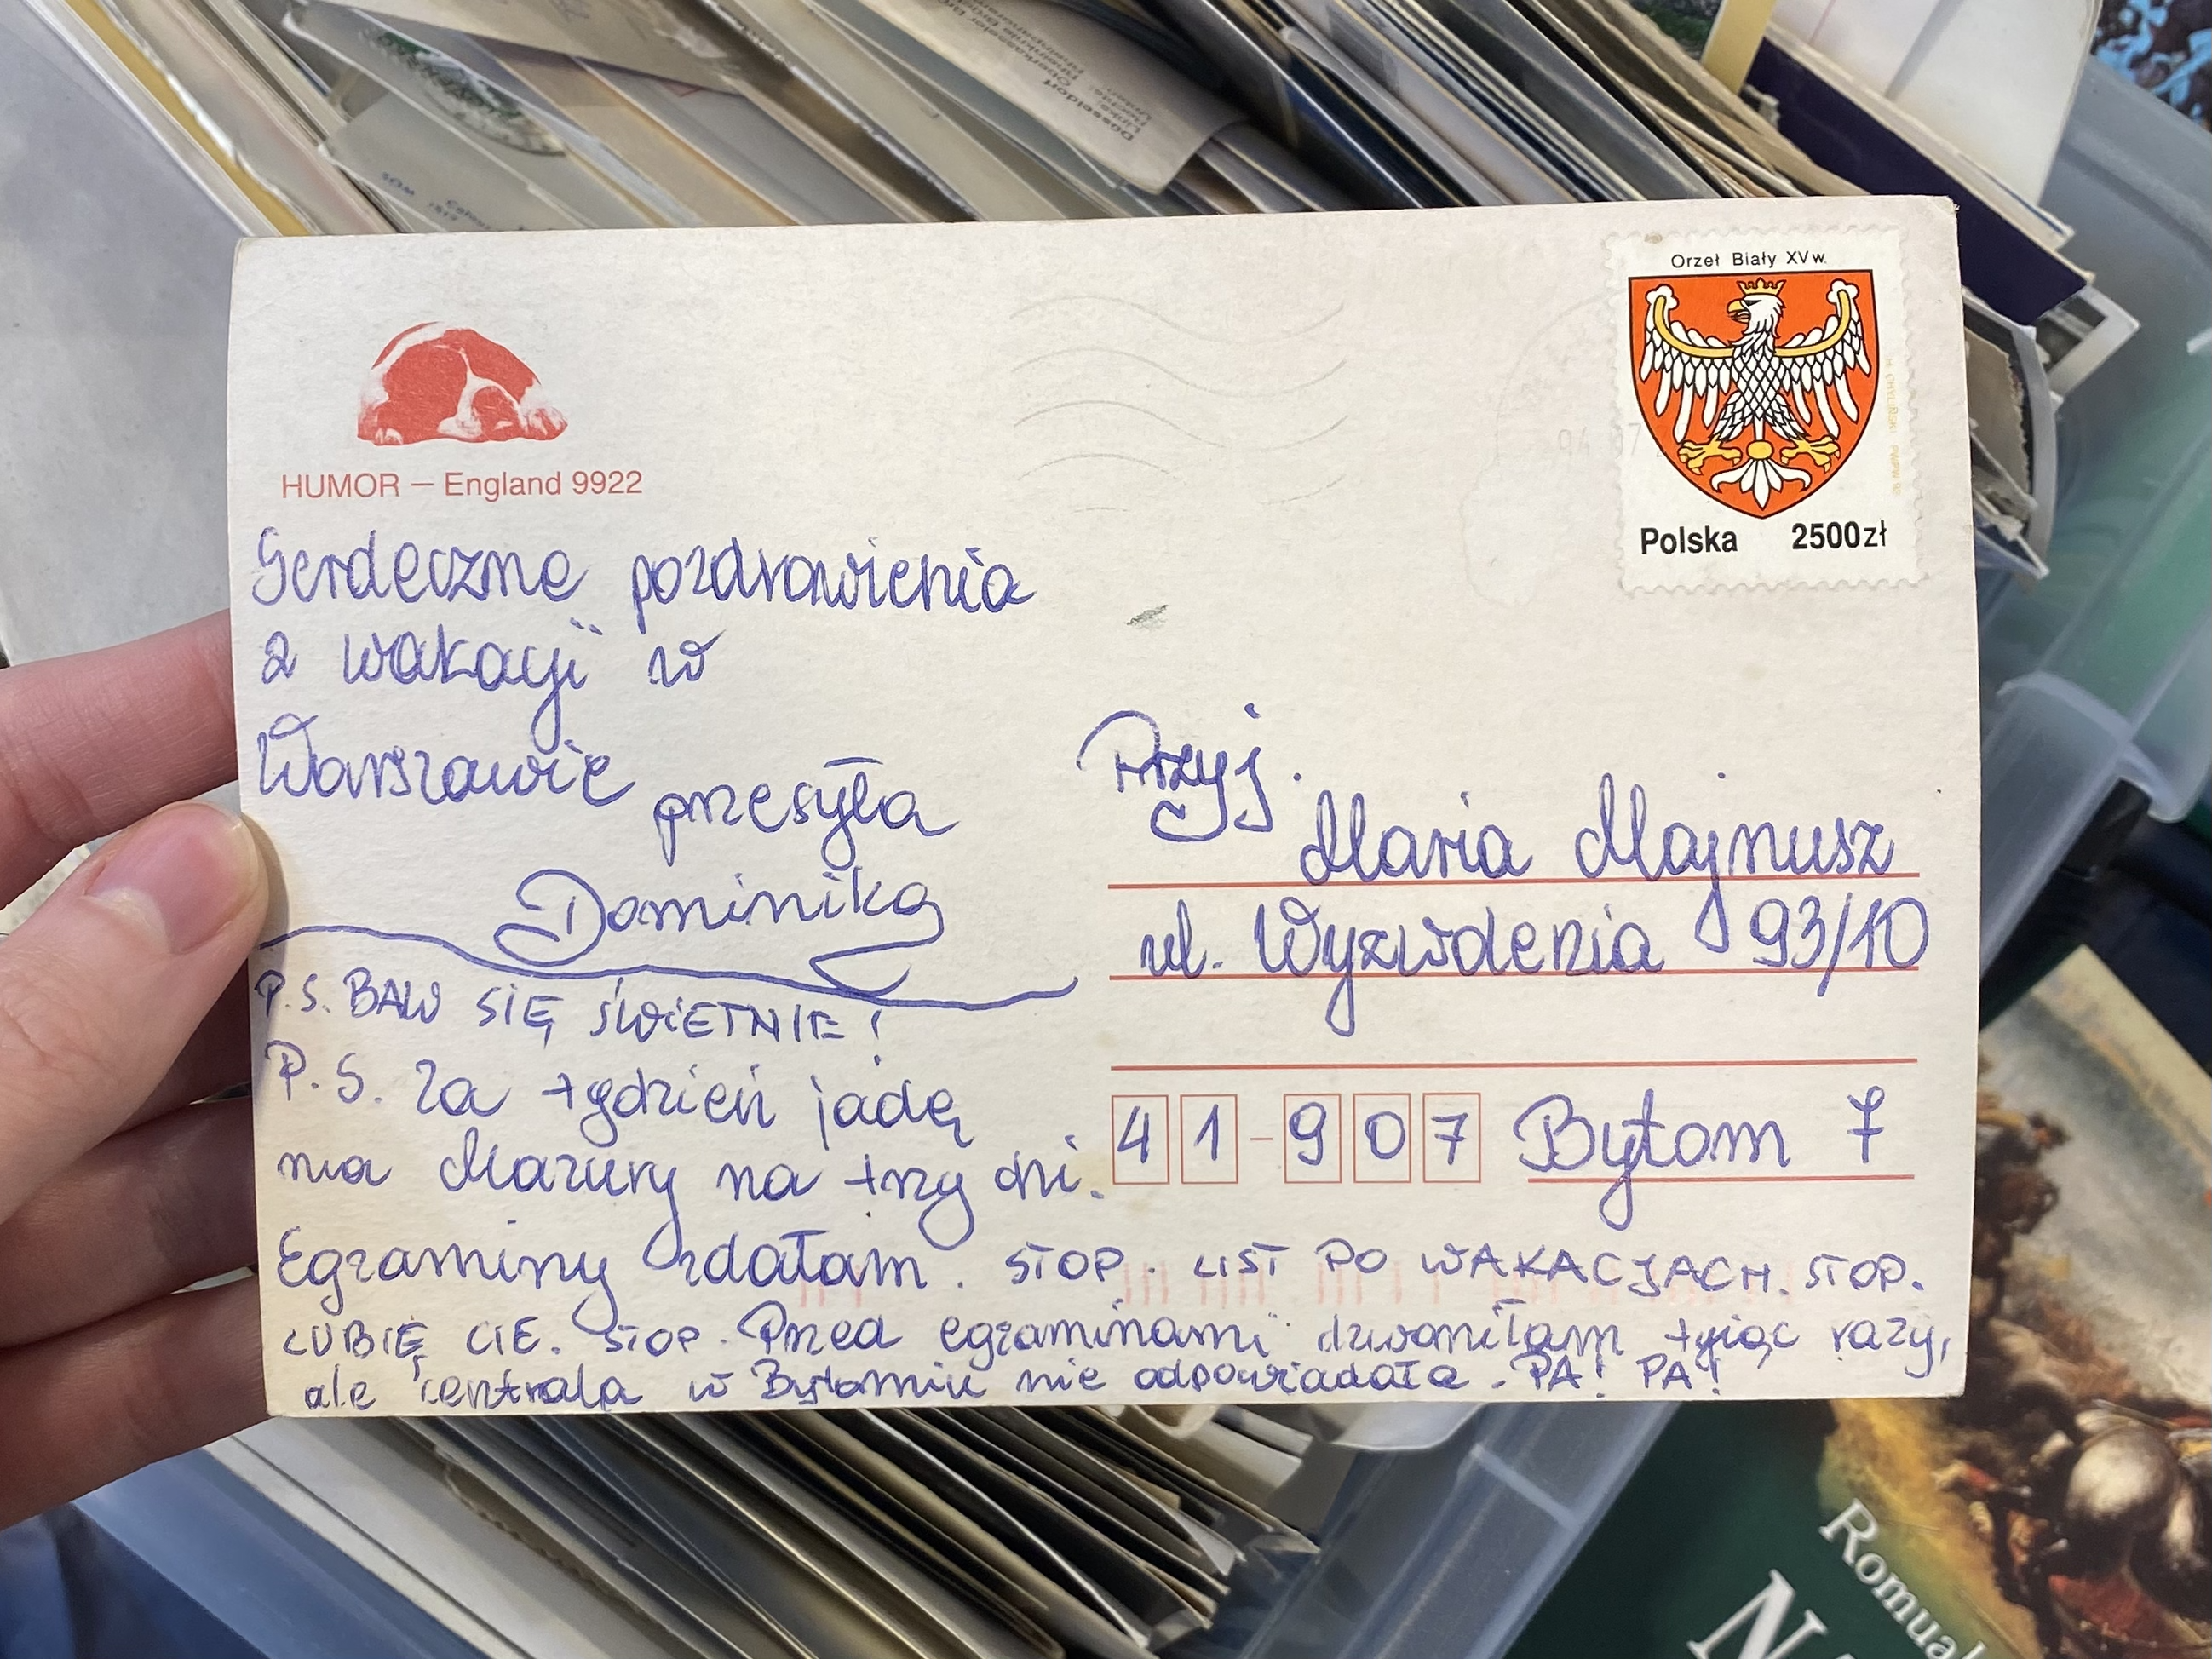 Orzeł Biały XVw.
Polska 2500zł
94 07
HUMOR – England 9922
Serdeczne pozdrowienia
z wakacji w
Warszawie przesyła
Dominika
P.S. BAW SIĘ ŚWIETNIE!
P.S. Za tydzień jadę
na Mazury na trzy dni.
Egzaminy zdałam. STOP. LIST PO WAKACJACH. STOP.
LUBIĘ CIĘ. STOP. Przed egzaminami dzwoniłam tysiąc razy,
ale centrala w Bytomiu nie odpowiadała. PA! PA!
Przyj.
Maria Majnusz
ul. Wyzwolenia 93/10
41-907 Bytom 7
Düsseldorf
Romual